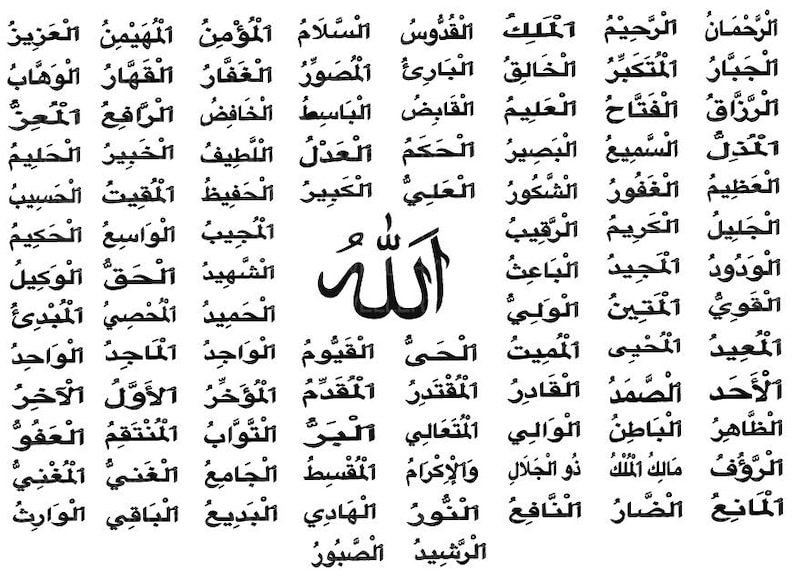 اَلْرَّحْمَانُ اَلْرَّحِيْمُ اَلْمَلِكُ اَلْقُدُّوسُ اَلْسَّلَامُ اَلْمُؤْمِنُ اَلْمُهَيْمِنُ اَلْعَزِيزُ
اَلْجَبَّارُ اَلْمُتَكَبِّرُ اَلْخَالِقُ اَلْبَارِئُ اَلْمُصَوِّرُ اَلْغَفَّارُ اَلْقَهَّارُ اَلْوَهَّابُ
اَلْرَّزَّاقُ اَلْفَتَّاحُ اَلْعَلِيمُ اَلْقَابِضُ اَلْبَاسِطُ اَلْخَافِضُ اَلْرَّافِعُ اَلْمُعِزُّ
اَلْمُذِلُّ اَلْسَّمِيعُ اَلْبَصِيرُ اَلْحَكَمُ اَلْعَدْلُ اَلْلَّطِيفُ اَلْخَبِيرُ اَلْحَلِيمُ
اَلْعَظِيمُ اَلْغَفُورُ اَلْشَّكُورُ اَلْعَلِيُّ اَلْكَبِيرُ اَلْحَفِيظُ اَلْمُقِيتُ اَلْحَسِيبُ
اَلْجَلِيلُ اَلْكَرِيمُ اَلْرَّقِيبُ اَلْمُجِيبُ اَلْوَاسِعُ اَلْحَكِيمُ
اَلْوَدُودُ اَلْمَجِيدُ اَلْبَاعِثُ اَللّٰهُ اَلْشَّهِيدُ اَلْحَقُّ اَلْوَكِيلُ
اَلْقَوِيُّ اَلْمَتِينُ اَلْوَلِيُّ اَلْحَمِيدُ اَلْمُحْصِيُ اَلْمُبْدِئُ
اَلْمُعِيدُ اَلْمُحْيِى اَلْمُمِيتُ اَلْحَىُّ اَلْقَيُّومُ اَلْوَاجِدُ اَلْمَاجِدُ اَلْوَاحِدُ
اَلْأَحَد اَلْصَّمَدُ اَلْقَادِرُ اَلْمُقْتَدِرُ اَلْمُقَدِّمُ اَلْمُؤَخِّرُ اَلأَوَّلُ اَلْآخِرُ
اَلْظَّاهِرُ اَلْبَاطِنُ اَلْوَالِي اَلْمُتَعَالِي اَلْبَرُّ اَلْتَّوَّابُ اَلْمُنْتَقِمُ اَلْعَفُوُّ
اَلْرَّؤُفُ مَالِكُ اَلْمُلْكُ ذُو اَلْجَلَالِ وَاَلْإِكْرَامُ اَلْمُقْسِطُ اَلْجَامِعُ اَلْغَنيُّ اَلْمُغْنِيُّ
اَلْمَانِعُ اَلْضَّارُ اَلْنَّافِعُ اَلْنُّورُ اَلْهَادِي اَلْبَدِيعُ اَلْبَاقِي اَلْوَارِثُ
اَلْرَّشِيدُ اَلْصَّبُورُ